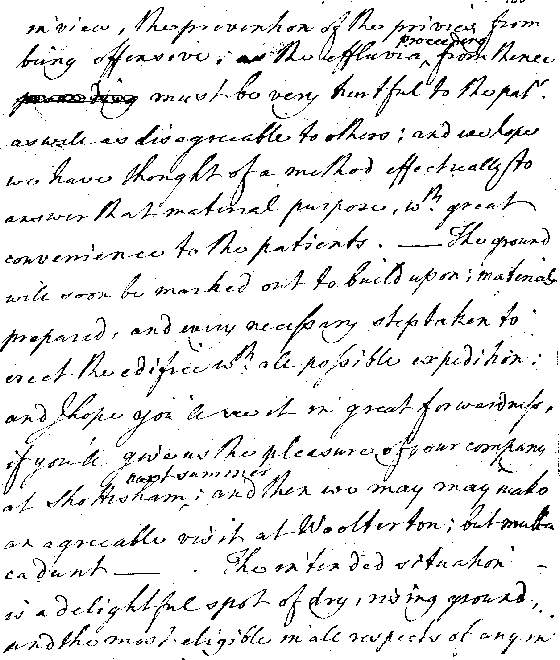 in view, the prevention of the privies from
being offensive; as the effluvia proceeding from thence
must be very hurtful to the pat.ts
as well as disagreeable to others; and we hope
we have thought of a method effectually to
answer that material purpose, wth. great
convenience to the patients. — The ground
will soon be marked out to build upon; materials
prepared, and every necessary step taken to
erect the edifice wth. all possible expedition:
and I hope you'll see it in great forwardness,
if you'll give us the pleasure of your company
at Shottisham next summer; and then we may may make
an agreeable visit at Woolterton; but multa
cadunt — . The intended situation
is a delightful spot of dry, rising ground,
and the most eligible in all respects of any in